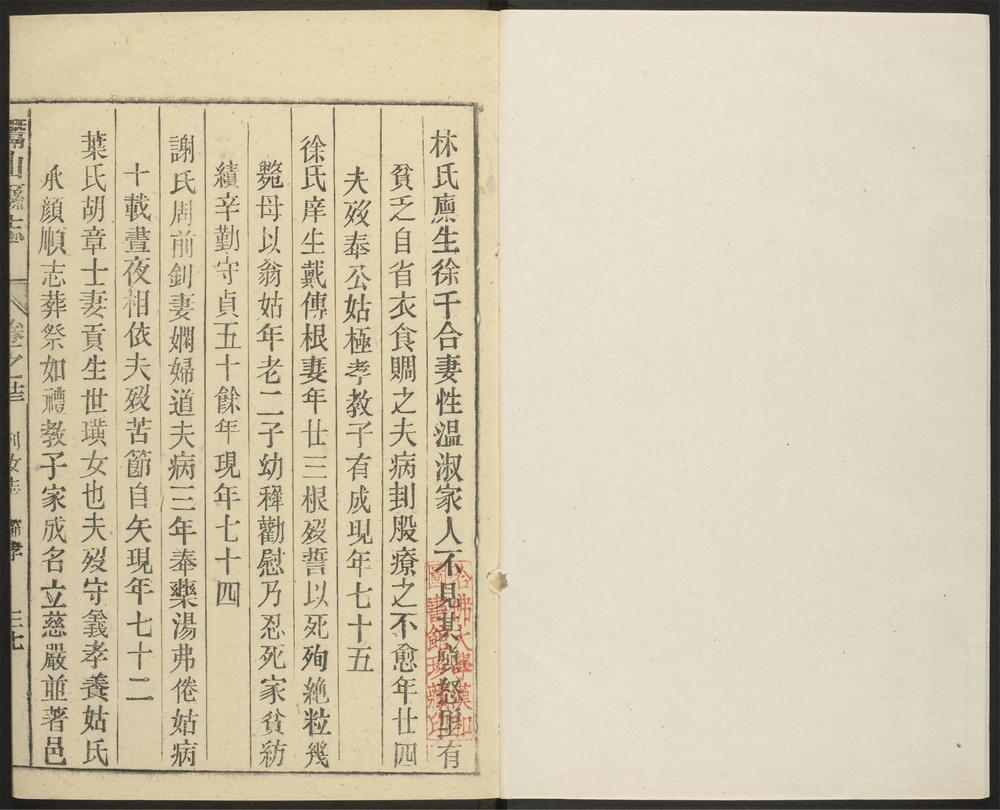 林氏廪生徐千合妻性溫淑家人不見其怒里有
貧乏自省衣食賙之夫病刲股療之不愈年廿四
夫歿奉公姑極孝教子有成現年七十五
徐氏庠生戴傳根妻年廿三根歿誓以死殉絶粒幾
斃母以翁姑年老二子幼穉勸慰乃忍死家貧紡
績辛勤守貞五十餘年現年七十四
謝氏周前釗妻嫻婦道夫病三年奉藥湯弗倦姑病
十載晝夜相依夫歿苦節自矢現年七十二
葉氏胡章士妻貢生世璜女也夫歿守義孝養姑氏
承顏順志葬祭如禮教子家成名立慈嚴並著邑
山縣志
卷之
列女志
節孝
三七
哈佛大學漢和
圖書館珍藏印